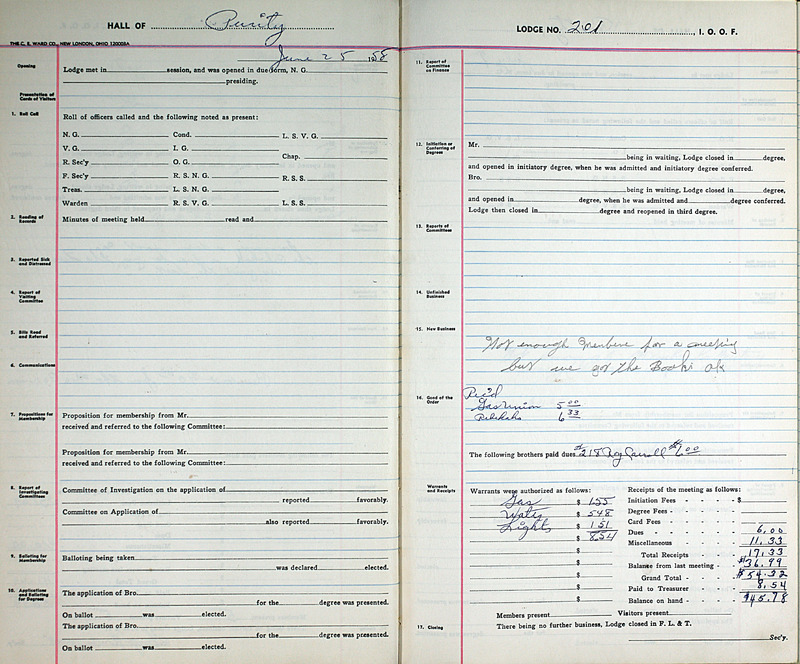 HALL OF Purity
THE C. E. WARD CO., NEW LONDON, OHIO 120008A
June 25 1958
Opening
Lodge met in session, and was opened in due form, N. G.
presiding.
Presentation of Cards of Visitors
1. Roll Call
Roll of officers called and the following noted as present:
N. G. Cond. L. S. V. G.
V. G. I. G.
Chap.
R. Sec'y O. G.
F. Sec'y R. S. N. G. R. S. S.
Treas. L. S. N. G.
Warden R. S. V. G. L. S. S.
2. Reading of Records
Minutes of meeting held read and
3. Reported Sick and Distressed
4. Report of Visiting Committee
5. Bills Read and Referred
6. Communications
7. Propositions for Membership
Proposition for membership from Mr.
received and referred to the following Committee:
Proposition for membership from Mr.
received and referred to the following Committee:
8. Report of Investigating Committees
Committee of Investigation on the application of
reported favorably.
Committee on Application of
also reported favorably.
9. Balloting for Membership
Balloting being taken
was declared elected.
10. Applications and Balloting for Degrees
The application of Bro.
for the degree was presented.
On ballot was elected.
The application of Bro.
for the degree was presented.
On ballot was elected.
LODGE NO. 201, I. O. O. F.
11. Report of Committee on Finance
12. Initiation or Conferring of Degrees
Mr.
being in waiting, Lodge closed in degree,
and opened in initiatory degree, when he was admitted and initiatory degree conferred.
Bro.
being in waiting, Lodge closed in degree,
and opened in degree, when he was admitted and degree conferred.
Lodge then closed in degree and reopened in third degree.
13. Reports of Committees
14. Unfinished Business
15. New Business
Not enough Members for a meeting
but we got the Books ok
16. Good of the Order
Rec'd
Gas Union 5 00
Rebekahs 6 33
The following brothers paid dues #218 Roy Carroll $6.00
Warrants and Receipts
Warrants were authorized as follows:
Gas $ 1.55
Water $ 5.48
Lights $ 1.51
$ 8.54
$
$
$
$
Receipts of the meeting as follows:
Initiation Fees - - - - $
Degree Fees - - - -
Card Fees
Dues - - - - - 6.00
Miscellaneous - - - - 11.33
Total Receipts - - - 17.33
Balance from last meeting - $36.99
Grand Total - - - $54.32
Paid to Treasurer - - - 8.54
Balance on hand - - - $45.78
Members present Visitors present
17. Closing
There being no further business, Lodge closed in F. L. & T.
Sec'y.